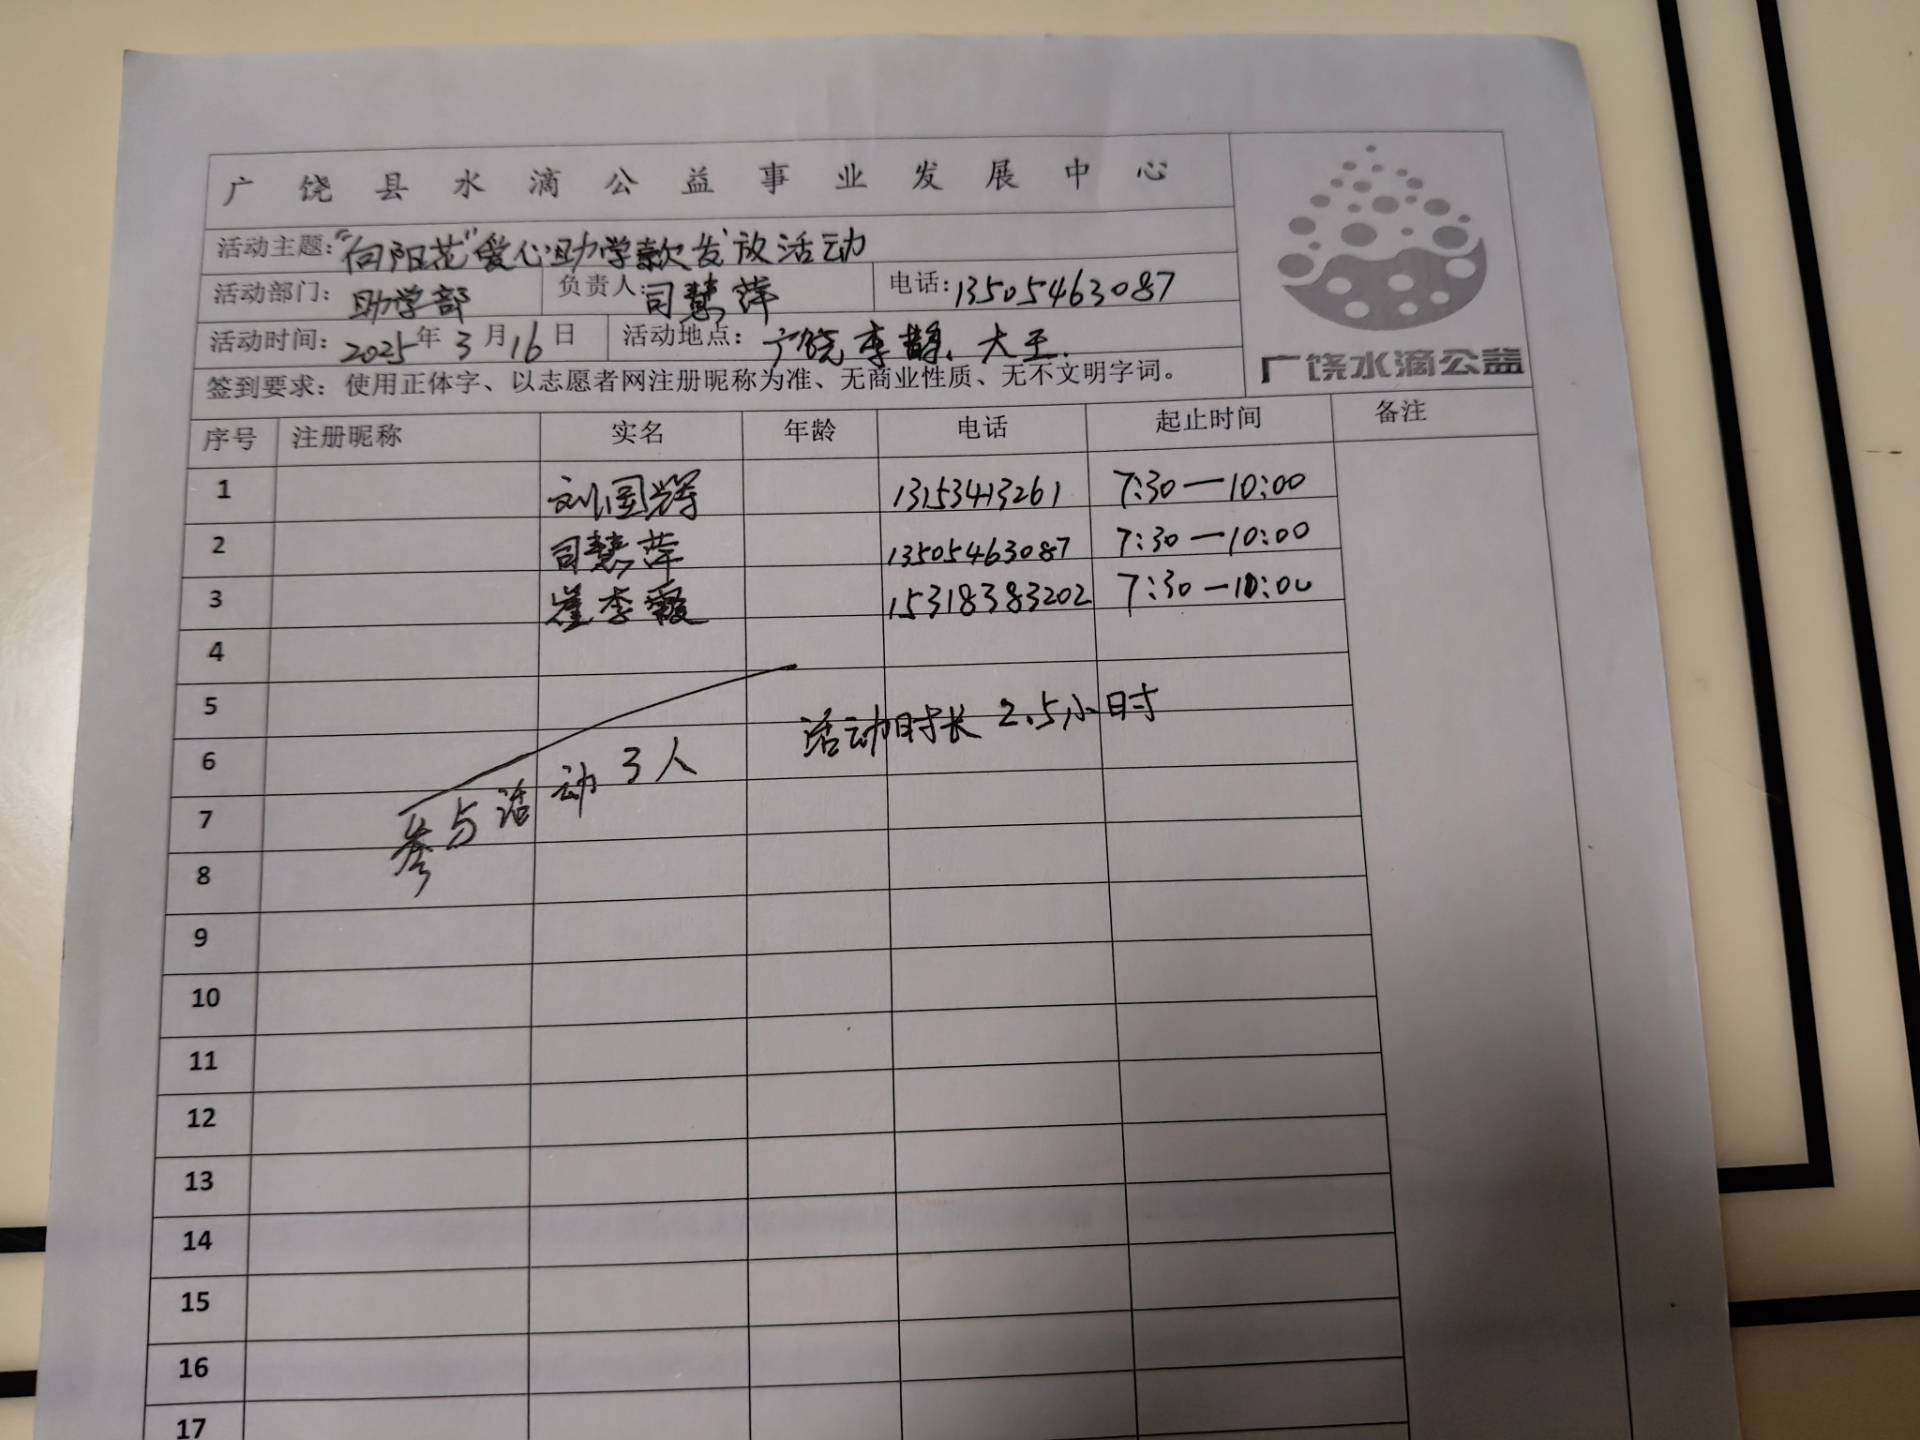 广饶县水滴公益事业发展中心
活动主题：“向阳花”爱心助学款发放活动
活动部门：助学部 负责人：司慧萍 电话：13505463087
活动时间：2025年3月16日 活动地点：广饶李鹊、大王.
签到要求：使用正体字、以志愿者网注册昵称为准、无商业性质、无不文明字词。
广饶水滴公益
序号 注册昵称 实名 年龄 电话 起止时间 备注
1 刘国辉 13153413261 7:30—10:00
2 司慧萍 13505463087 7:30—10:00
3 崔李霞 15318383202 7:30—10:00
4
5
6
参与活动3人 活动时长2.5小时
7
8
9
10
11
12
13
14
15
16
17